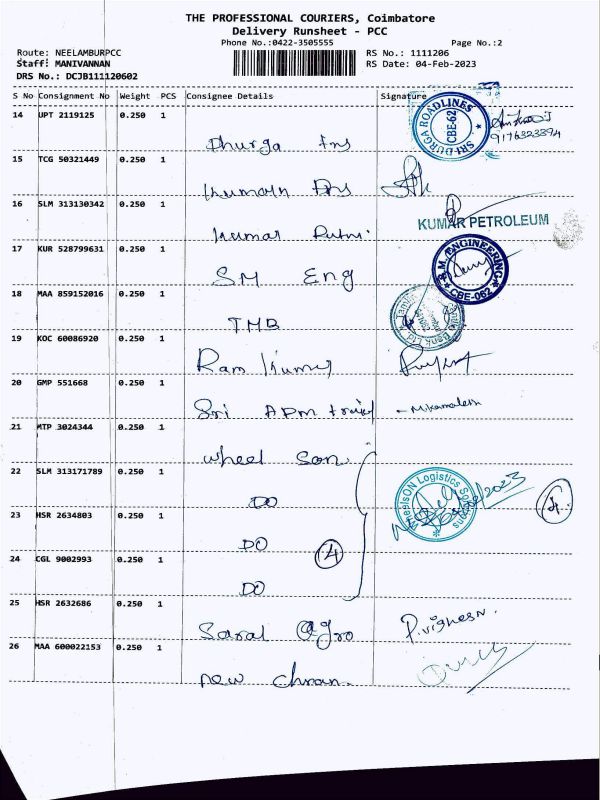 THE PROFESSIONAL COURIERS, Coimbatore
Delivery Runsheet - PCC
Phone No.:0422-3505555 Page No.:2
Route: NEELAMBURPCC RS No.: 1111206
Staff: MANIVANNAN RS Date: 04-Feb-2023
DRS No.: DCJB111120602
S No Consignment No Weight PCS Consignee Details Signature
14 UPT 2119125 0.250 1 SRI DURGA ROADLINES CBE-62
9176323394
Dhurga Ins
15 TCG 50321449 0.250 1
16 SLM 313130342 0.250 1
Kumar KUMAR PETROLEUM
17 KUR 528799631 0.250 1 B.M. ENGINEERING CBE-062
SM Eng
18 MAA 859152016 0.250 1
TMB
19 KOC 60086920 0.250 1
Ram Kumar
20 GMP 551668 0.250 1
Sri ADM
21 MTP 3024344 0.250 1
wheel son
22 SLM 313171789 0.250 1 WheelsON Logistics Solutions
DO 4
23 HSR 2634803 0.250 1
DO 4
24 CGL 9002993 0.250 1
DO
25 HSR 2632686 0.250 1
Saral Agro P.vighesn.
26 MAA 600022153 0.250 1
new